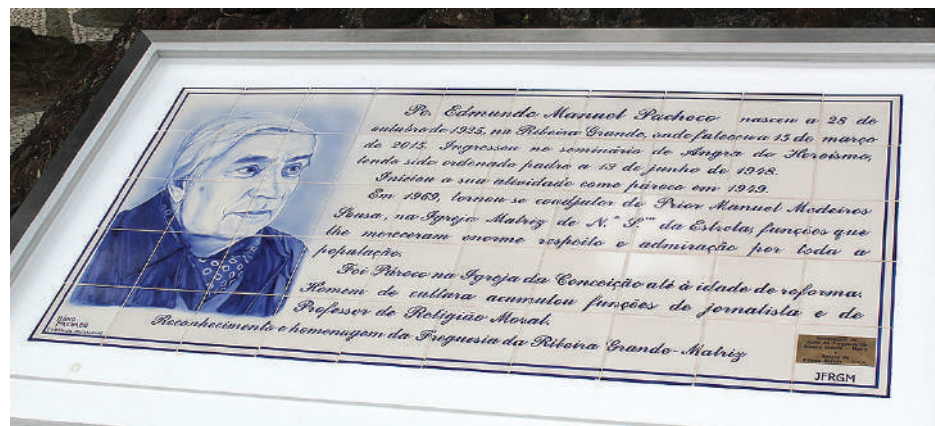 Pe. Edmundo Manuel Pacheco nasceu a 28 de
outubro de 1925, na Ribeira Grande, onde faleceu a 15 de março
de 2015. Ingressou no seminário de Angra do Heroísmo,
tendo sido ordenado padre a 13 de junho de 1948.
Iniciou a sua atividade como pároco em 1949.
Em 1969, tornou-se coadjutor do Prior Manuel Medeiros
Sousa, na Igreja Matriz de N.ª S.ra da Estrela, funções que
lhe mereceram enorme respeito e admiração por toda a
população.
Foi Pároco na Igreja da Conceição até à idade de reforma.
Homem de cultura acumulou funções de jornalista e de
Professor de Religião Moral.
Reconhecimento e homenagem da Freguesia da Ribeira Grande-Matriz
JFRGM